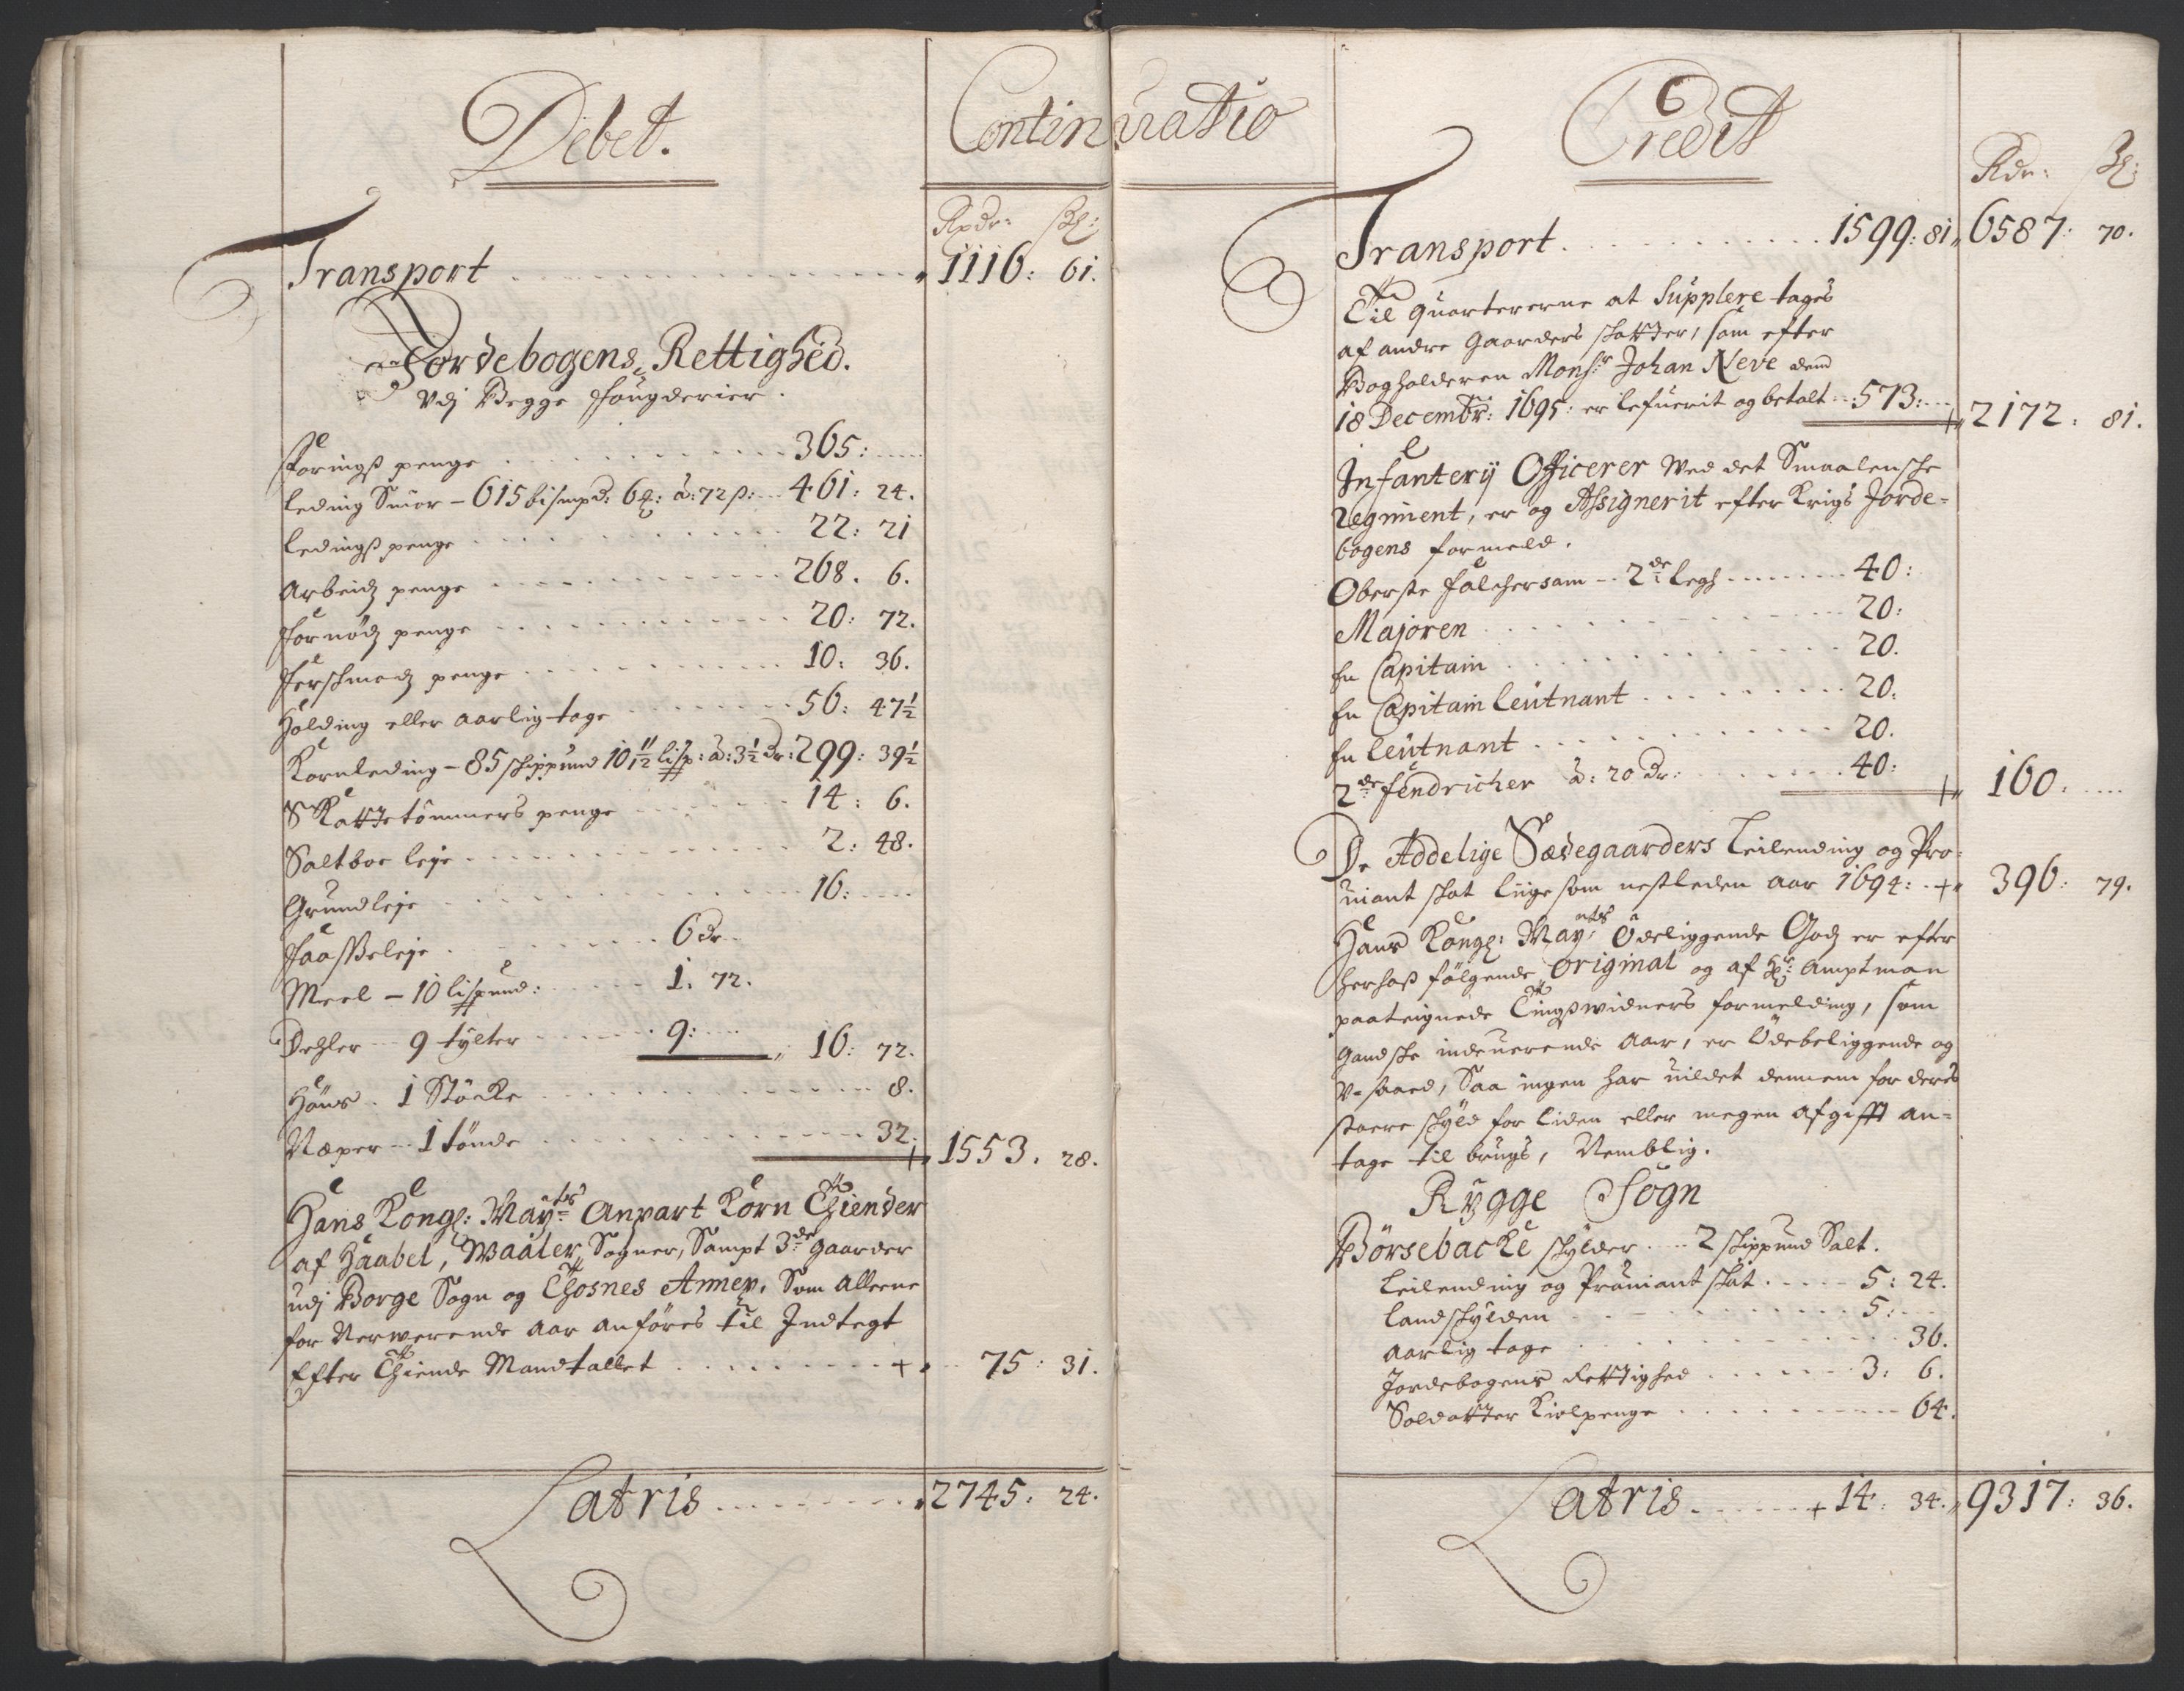 Debet.
Continuatio
Rixdr: ß:
Transport 1116: 61.
Jordebogens Rettighed.
Udj Begge fougderier.
foringß penge 365:
leding Smør - 615 bismpd: 6 : à: 72 ß: 461: 24.
ledingß penge 22: 21
Arbeidz penge 268. 6.
fornødz penge 20: 72.
penge 10: 36.
Holding eller aarlig tage 56: 47½
Kornleding - 85 schippund 10 11/12 lisp: à: 3½ dr: 299: 39½
Skattetømmers penge 14: 6.
Saltboe leje 2: 48.
Grundleje 16:
leje 6 dr
Meel - 10 lispund: 1. 72.
Dehler - 9 tylter 9: 16: 72.
Høns. 1 Støcke 8.
Næper - 1 tønde 32. 1553. 28.
Hans Kongl: Mayts Anpart Korn Thiender
af Haabel, Waaler Sogner, Sampt 3de gaarder
udj Borge Sogn og Thosnes Annex, Som alleene
for Nerwerende aar anføres til Indtegt
Efter Thiende Mandtallet 75: 31.
Latris 2745: 24.
Credit
Rdr: ß:
Transport 1599: 81 6587: 70.
Til quartererne at Supplere tages
af andre gaarders skatter, som efter
Bogholderen Monsr Johan Neve dend
18 Decembr: 1695: er lefuerit og betalt 573: 2172. 81.
Infanterij Officerer Wed det Smaalensche
Regiment, er og Assignerit efter Krigs Jorde-
bogens formeld.
Oberste falchersam - 2de legh 40:
Majoren 20:
En Capitain 20.
En Capitain leutnant 20.
En leutnant 20.
2de fendricher à: 20 dr: 40: 160.
De Addelige Sædegaarders leilending og Pro-
uiant skat liige som nestleden aar 1694: 396: 79.
Hans Kongl: Mayts Ødeliggende Godz er efter
herhoß følgende original og af Hr: amptman
paateignede Tingßwidners formelding, som
gandske indeuerende Aar, er Ødebeliggende og
V-saaed, Saa ingen har uildet dennem for deres
skyld for liden eller megen afgifft an-
tage til brugs, Nemblig.
Rygge Sogn
Børsebacke skylder 2 skippund Salt.
Leilending og Prouiant skat 5: 24.
Landskylden 5:
Aarlig tage 36.
Jordebogens Rettighed 3: 6.
Soldatter Kiolpenge 64.
Latris 14: 34. 9317: 36.